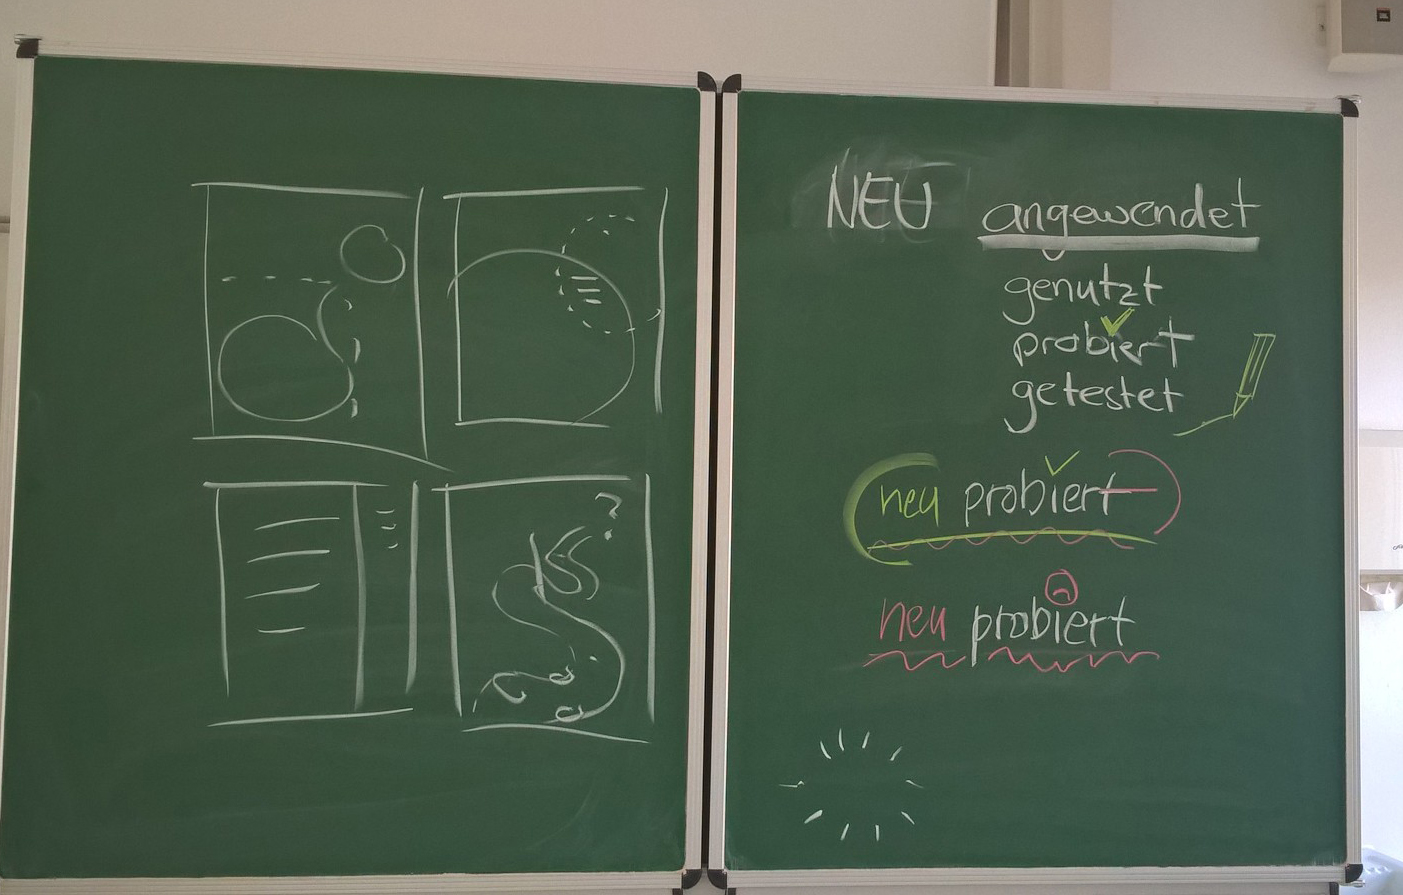 NEU angewendet
genutzt
probiert
getestet
neu probiert
neu probiert
?